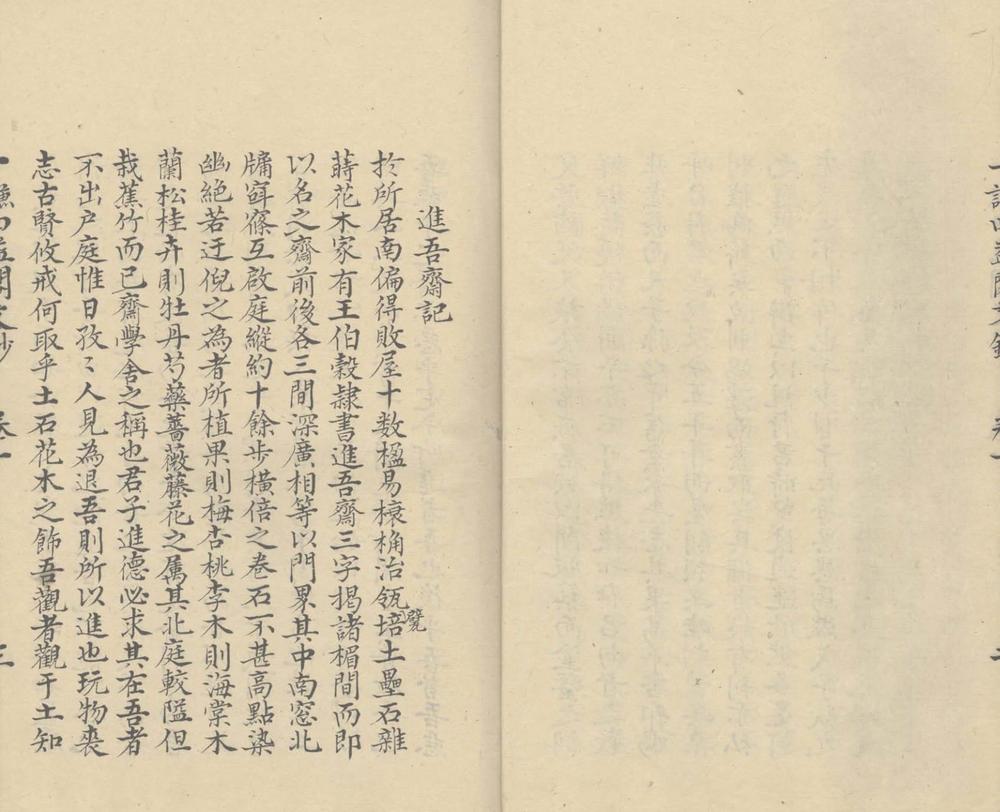 進吾齋記
於所居南偏得敗屋十數楹易榱桷治瓴甓培土壘石雜
蒔花木家有王伯穀隸書進吾齋三字揭諸楣間而即
以名之齋前後各三間深廣相等以門界其中南窓北
牗窔寮互啟庭縱約十餘步橫倍之卷石不甚高點染
幽絕若迂倪之為者所植果則梅杏桃李木則海棠木
蘭松桂卉則牡丹芍藥薔薇藤花之属其北庭較隘但
栽蕉竹而已齋學舍之稱也君子進德必求其在吾者
不出户庭惟日孜〻人見為退吾則所以進也玩物喪
志古賢攸戒何取乎土石花木之飾吾觀者觀于土知